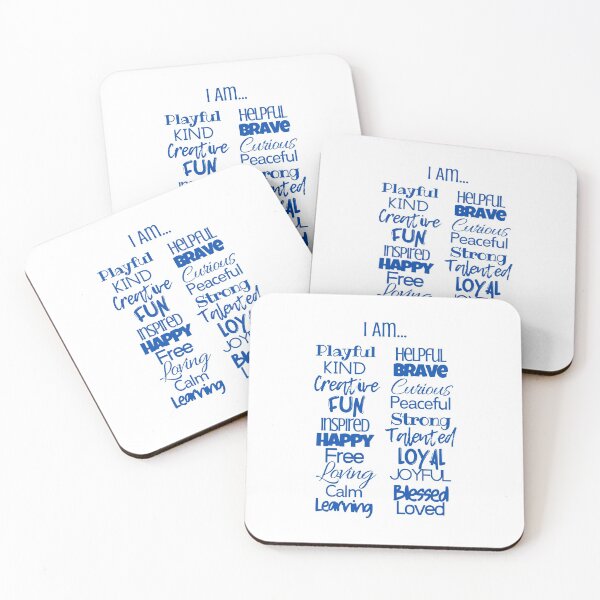 I AM...
Playful
KIND
Creative
FUN
HELPFUL
BRAVE
Curious
Peaceful
I AM...
Playful
KIND
Creative
FUN
INSPIRED
HAPPY
Free
Loving
HELPFUL
BRAVE
Curious
Peaceful
Strong
Talented
LOYAL
I AM...
Playful
KIND
Creative
FUN
INSPIRED
HAPPY
Free
Loving
Calm
Learning
HELPFUL
BRAVE
Curious
Peaceful
Strong
Talented
LOYAL
I AM...
Playful
KIND
Creative
FUN
INSPIRED
HAPPY
Free
Loving
Calm
Learning
HELPFUL
BRAVE
Curious
Peaceful
Strong
Talented
LOYAL
JOYFUL
Blessed
Loved